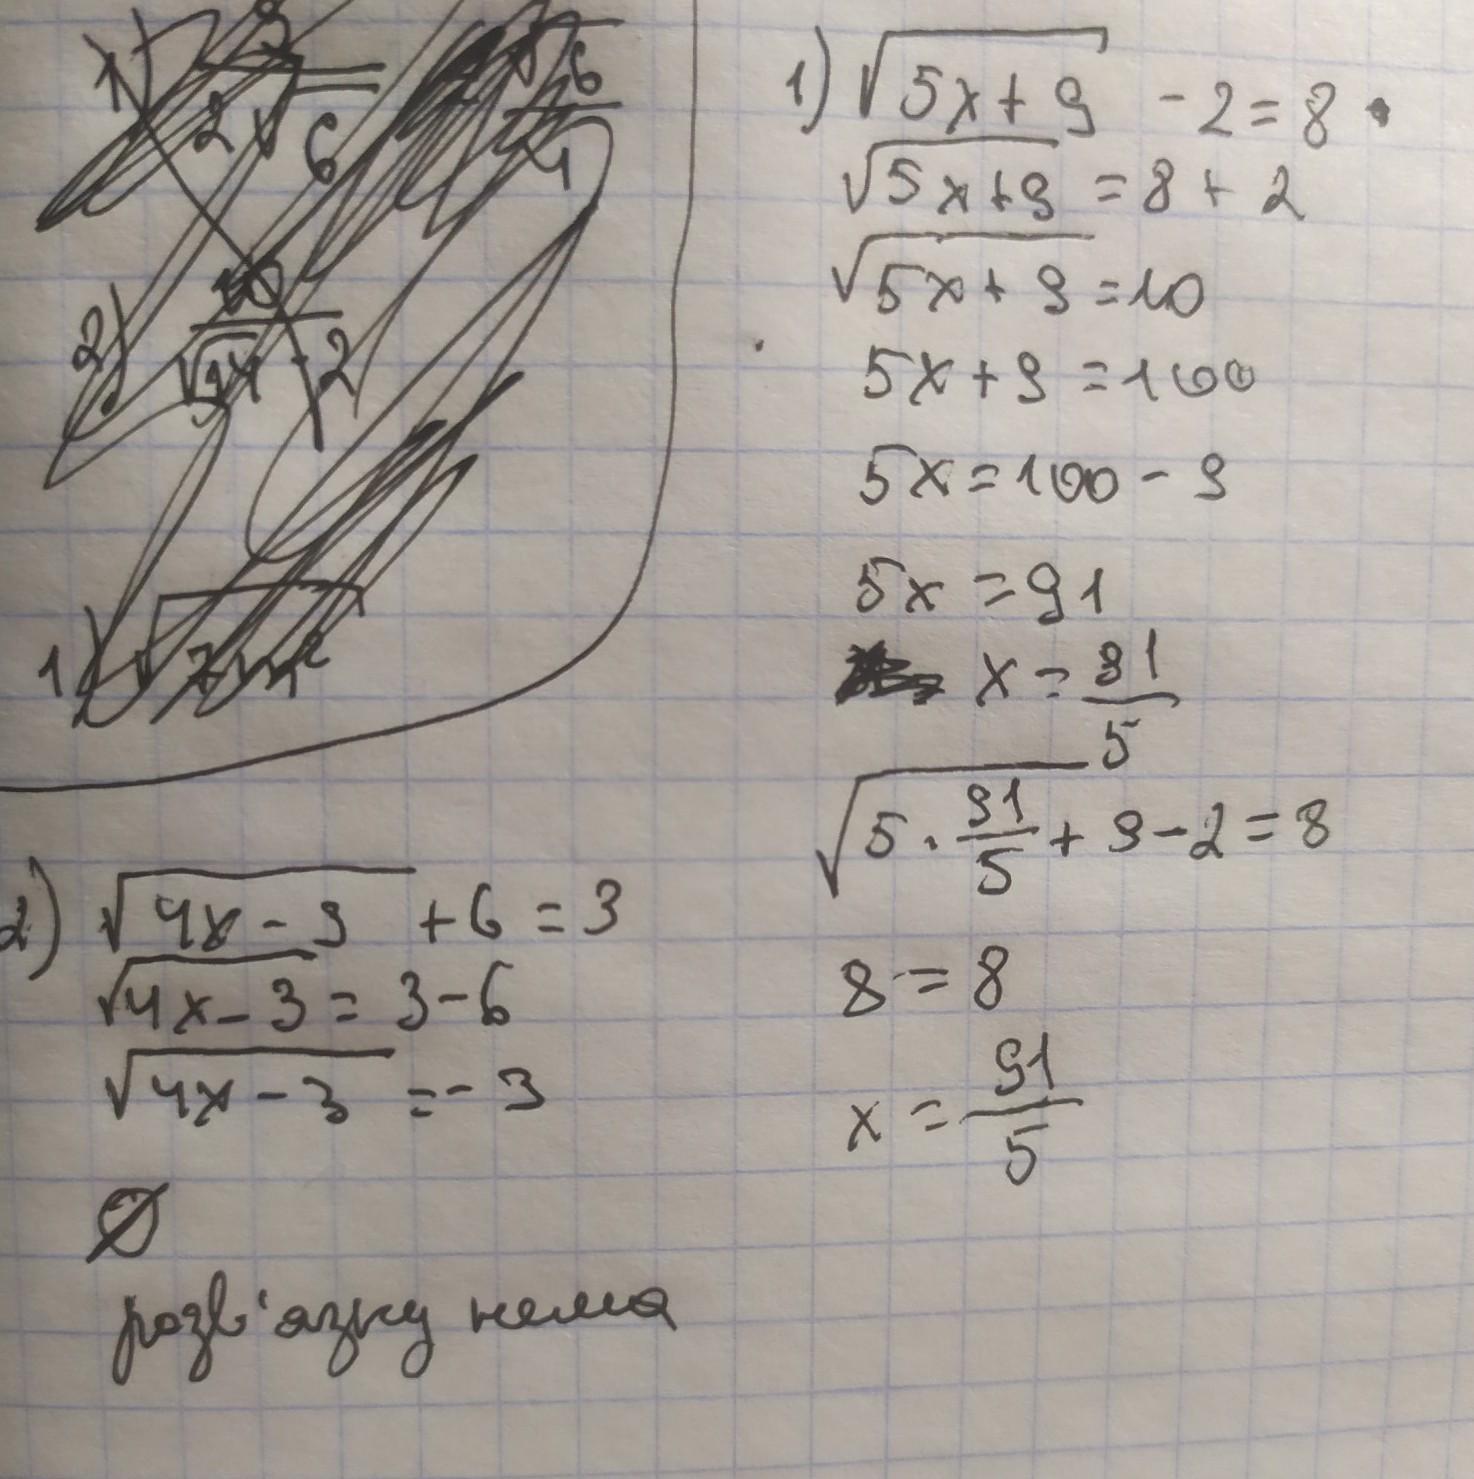 1) √5x+9 - 2 = 8
√5x+9 = 8 + 2
√5x+9 = 10
5x + 9 = 100
5x = 100 - 9
5x = 91
x = 91/5
√5 · 91/5 + 9 - 2 = 8
8 = 8
x = 91/5
2) √4x - 3 + 6 = 3
√4x - 3 = 3 - 6
√4x - 3 = - 3
∅
розв'язку нема